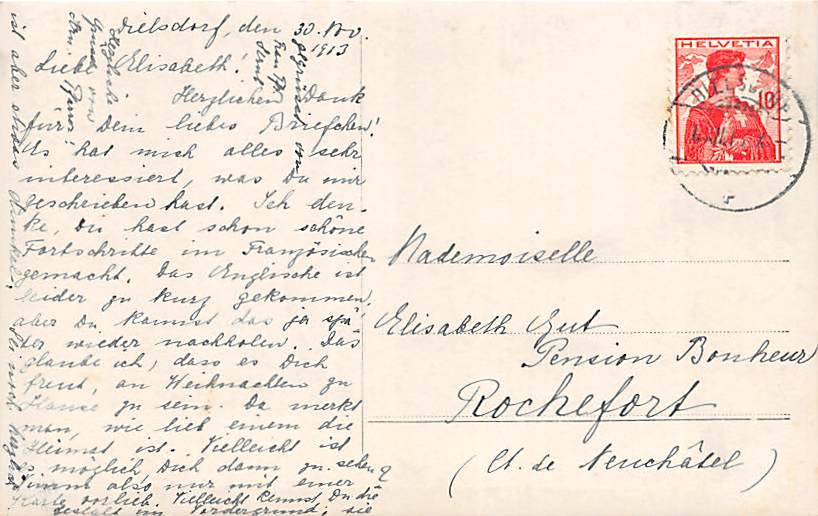 Dielsdorf, den 30. Nov.
1913
Liebe Elisabeth!
Herzlichen Dank
für's Dein liebes Briefchen!
Es hat mich alles sehr
interessiert, was Du mir
geschrieben hast. Ich den-
ke, Du hast schon schöne
Fortschritte im Französischen
gemacht. Das Englische ist
leider zu kurz gekommen,
aber Du kannst das ja spä-
ter wieder nachholen. Das
glaube ich, dass es Dich
freut, an Weihnachten zu
Hause zu sein. Da merkt
man, wie lieb einem die
Heimat ist. Vielleicht ist
es möglich Dich dann zu sehen?
Nimm also nur mit einer
Karte vorlieb. Vielleicht kennst Du die
Gestalt im Vordergrund; sie
ist aber etwas dunkel.
Herzliche
Grüsse von
HELVETIA
10
Mademoiselle
Elisabeth Gut
Pension Bonheur
Rochefort
(Ct. de Neuchâtel)